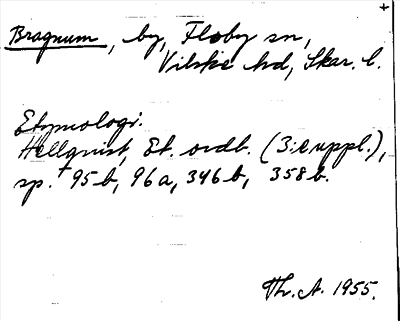 Bragnum, by, Floby sn,
Vilske hd, Skar. l.
Etymologi.
Hellquist, Et. ordb. (3:e uppl.),
sp. 95 b, 96 a, 346 b, 358 b.
Th. A. 1955.